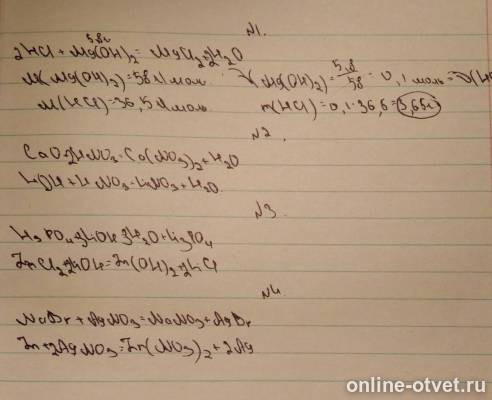 N1.
5,8г
2HCl + Mg(OH)2 = MgCl2+2H2O
M(Mg(OH)2)=58 г/моль
(Mg(OH)2)= 5,8/58 = 0,1 моль=
M(HCl)=36,5 г/моль
m(HCl)=0,1·36,6=3,65г
N2
CaO+2HNO3=Ca(NO3)2+H2O
LiOH+HNO3=LiNO3+H2O
N3
H3PO4+3LiOH=3H2O+Li3PO4
ZnCl2+2LiOH=Zn(OH)2+2LiCl
N4
NaBr+AgNO3=NaNO3+AgBr
Zn+2AgNO3=Zn(NO3)2+2Ag
online-otvet.ru